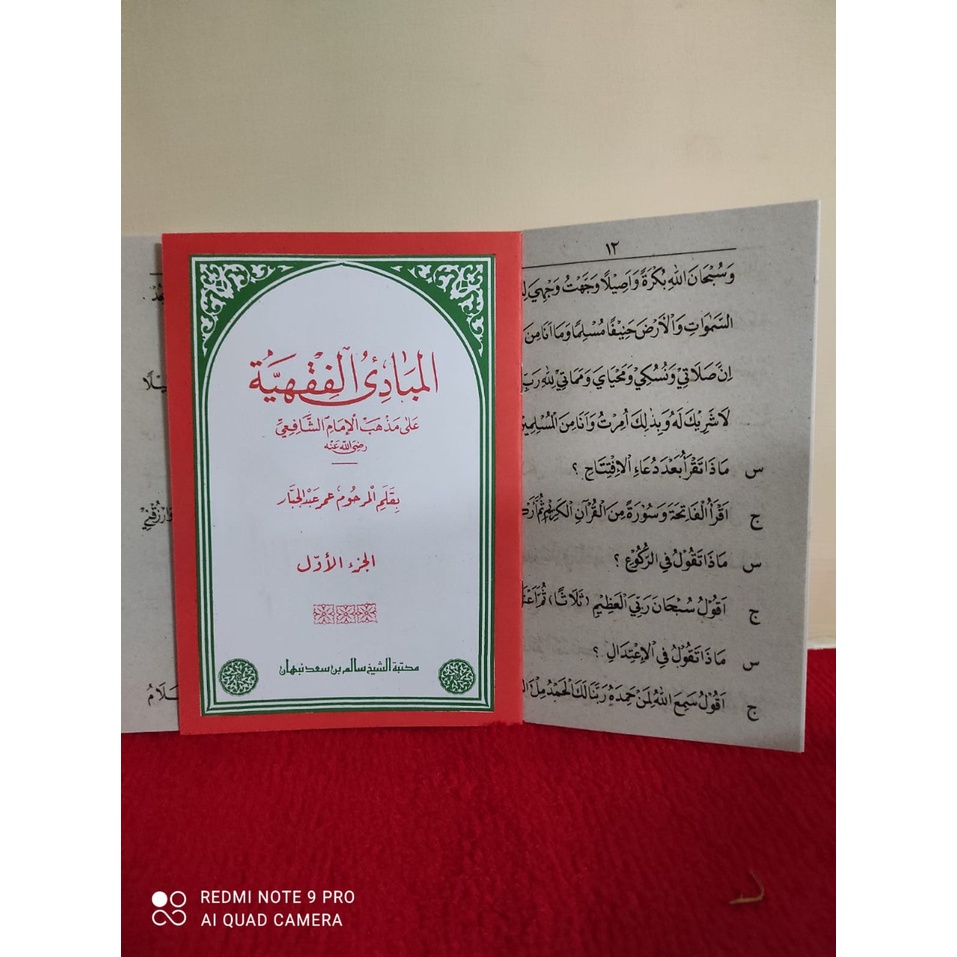 المبادئ الفقهية
على مذهب الإمام الشافعي
رضي الله عنه
بقلم المرحوم عمر عبد الجبار
الجزء الأول
مكتبة الشيخ سالم بن سعد نبهان
١٢
وَسُبْحَانَ اللهِ بُكْرَةً وَاَصِيْلًا وَجَّهْتُ وَجْهِيَ
السَّمٰوَاتِ وَالْاَرْضَ حَنِيْفًا مُسْلِمًا وَمَا اَنَا مِنَ
اِنَّ صَلَاتِيْ وَنُسُكِيْ وَمَحْيَايَ وَمَمَاتِيْ لِلهِ رَبِّ
لَا شَرِيْكَ لَهُ وَبِذٰلِكَ اُمِرْتُ وَاَنَا مِنَ الْمُسْلِمِيْنَ
س مَاذَا تَقْرَأُ بَعْدَ دُعَاءِ الْاِفْتِتَاحِ ؟
ج اَقْرَأُ الْفَاتِحَةَ وَسُوْرَةً مِنَ الْقُرْآنِ الْكَرِيْمِ ثُمَّ
س مَاذَا تَقُوْلُ فِي الرُّكُوْعِ ؟
ج اَقُوْلُ سُبْحَانَ رَبِّيَ الْعَظِيْمِ (ثَلَاثًا) ثُمَّ
س مَاذَا تَقُوْلُ فِي الْاِعْتِدَالِ ؟
ج اَقُوْلُ سَمِعَ اللهُ لِمَنْ حَمِدَهُ رَبَّنَا لَكَ الْحَمْدُ مِلْءَ
REDMI NOTE 9 PRO
AI QUAD CAMERA